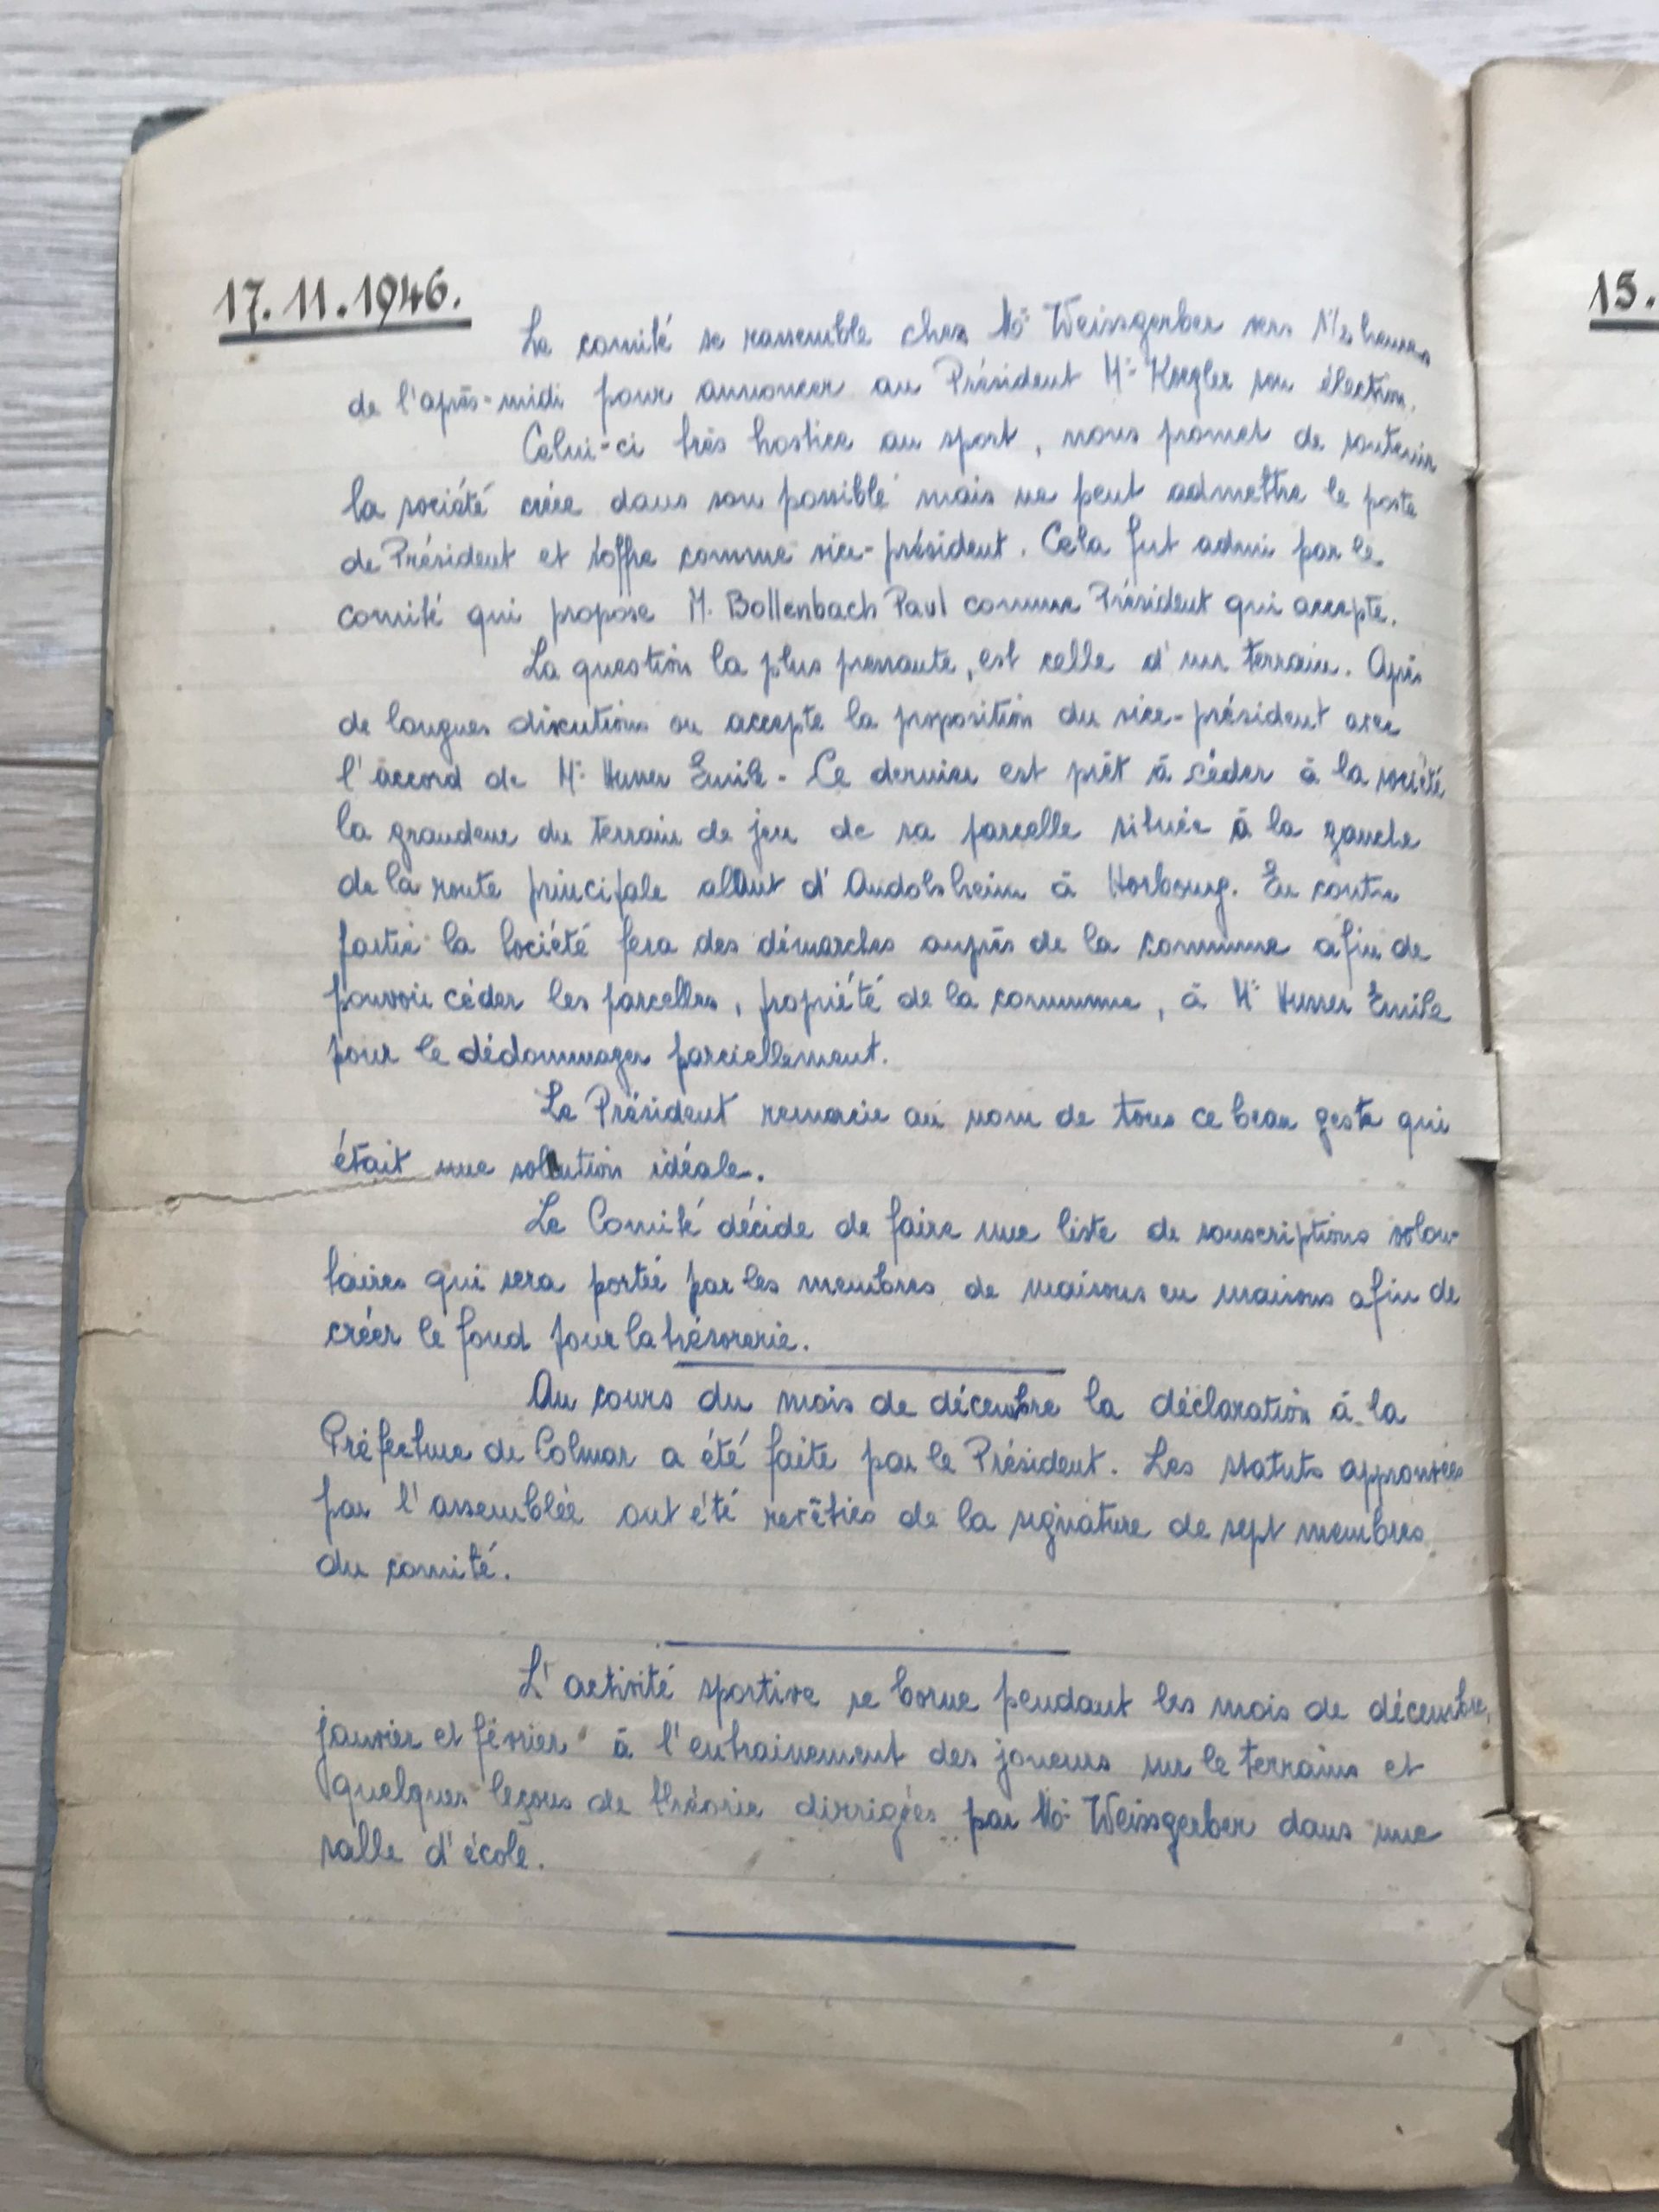 17. 11. 1946.
15.
Le comité se rassemble chez Mr Weissgerber vers heures
de l'après-midi pour annoncer au Président Mr Koegler son élection.
Celui-ci très hostice au sport, nous promet de soutenir
la société créée dans son possible mais ne peut admettre le poste
de Président et s'offre comme vice-président. Cela fut admi par le
comité qui propose M. Bollenbach Paul comme Président qui accepte.
La question la plus pressante, est celle d'un terrain. Après
de longues discutions on accepte la proposition du vice-président avec
l'accord de Mr Husser Emile. Ce dernier est prêt à céder à la société
la grandeur du terrain de jeu de sa parcelle située à la gauche
de la route principale allant d'Andolsheim à Horbourg. En contre
partie la Société fera des démarches auprès de la commune afin de
pouvoir céder les parcelles, propriété de la commune, à Mr Husser Emile
pour le dédommager parciellement.
Le Président remercie au nom de tous ce beau geste qui
était une solution idéale.
Le Comité décide de faire une liste de souscriptions volon-
taires qui sera portée par les membres de maisons en maisons afin de
créer le fond pour la trésorerie.
Au cours du mois de décembre la déclaration à la
Préfecture de Colmar a été faite par le Président. Les statuts approuvées
par l'assemblée ont été revêties de la signature de sept membres
du comité.
L'activité sportive se borne pendant les mois de décembre,
janvier et février à l'entrainement des joueurs sur le terrains et
quelques leçons de théorie dirrigées par Mr Weissgerber dans une
salle d'école.